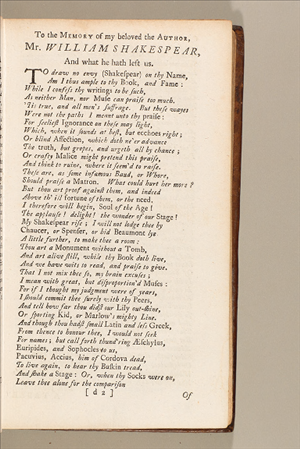 To the MEMORY of my beloved the AUTHOR,
Mr. WILLIAM SHAKESPEAR,
And what he hath left us.
TO draw no envy (Shakespear) on thy Name,
Am I thus ample to thy Book, and Fame:
While I confess thy writings to be such,
As neither Man, nor Muse can praise too much.
'Tis true, and all men's suffrage. But these wayes
Were not the paths I meant unto thy praise:
For seeliest Ignorance on these may light,
Which, when it sounds at best, but ecchoes right;
Or blind Affection, which doth ne'er advance
The truth, but gropes, and urgeth all by chance;
Or crafty Malice might pretend this praise,
And think to ruine, where it seem'd to raise.
These are, as some infamous Baud, or Whore,
Should praise a Matron. What could hurt her more?
But thou art proof against them, and indeed
Above th' ill fortune of them, or the need.
I therefore will begin, Soul of the Age!
The applause! delight! the wonder of our Stage!
My Shakespear rise; I will not lodge thee by
Chaucer, or Spenser, or bid Beaumont lye
A little further, to make thee a room:
Thou art a Monument without a Tomb,
And art alive still, while thy Book doth live,
And we have wits to read, and praise to give.
That I not mix thee so, my brain excuses;
I mean with great, but disproportion'd Muses:
For if I thought my judgment were of years,
I should commit thee surely with thy Peers,
And tell how far thou didst our Lily out-shine,
Or sporting Kid, or Marlow's mighty Line.
And though thou hadst small Latin and less Greek,
From thence to honour thee, I would not seek
For names; but call forth thund'ring Æschylus,
Euripides, and Sophocles to us,
Pacuvius, Accius, him of Cordova dead,
To live again, to hear thy Buskin tread,
And shake a Stage: Or, when thy Socks were on,
Leave thee alone for the comparison
[ d 2 ]
Of